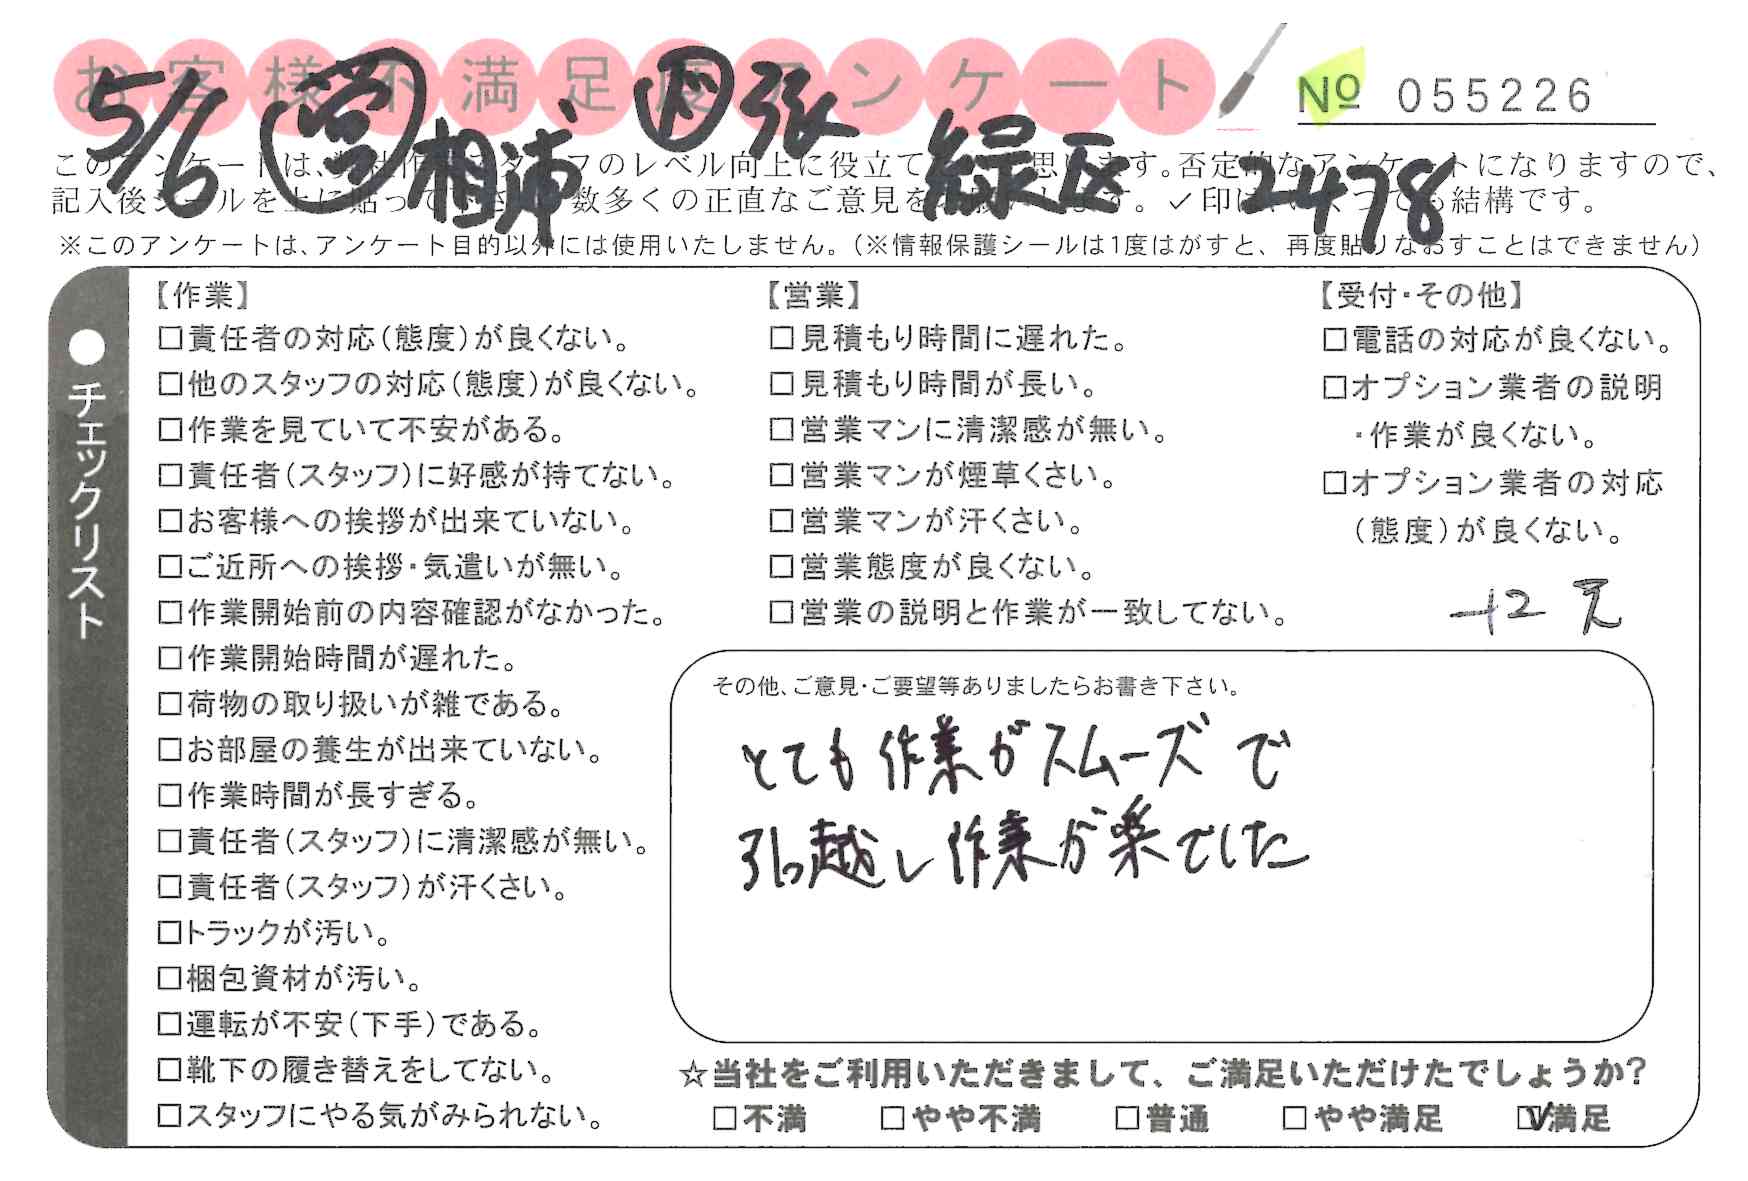 お客様不満足度アンケート
№ 055226
5/6 営 相浦 下 張 緑区 2478
このアンケートは、弊社作業スタッフのレベル向上に役立てたいと思います。否定的なアンケートになりますので、
記入後シールを上に貼って下さい。数多くの正直なご意見をお願いします。✓印は、いくつでも結構です。
※このアンケートは、アンケート目的以外には使用いたしません。(※情報保護シールは1度はがすと、再度貼りなおすことはできません)
●チェックリスト
【作業】
□責任者の対応(態度)が良くない。
□他のスタッフの対応(態度)が良くない。
□作業を見ていて不安がある。
□責任者(スタッフ)に好感が持てない。
□お客様への挨拶が出来ていない。
□ご近所への挨拶・気遣いが無い。
□作業開始前の内容確認がなかった。
□作業開始時間が遅れた。
□荷物の取り扱いが雑である。
□お部屋の養生が出来ていない。
□作業時間が長すぎる。
□責任者(スタッフ)に清潔感が無い。
□責任者(スタッフ)が汗くさい。
□トラックが汚い。
□梱包資材が汚い。
□運転が不安(下手)である。
□靴下の履き替えをしてない。
□スタッフにやる気がみられない。
【営業】
□見積もり時間に遅れた。
□見積もり時間が長い。
□営業マンに清潔感が無い。
□営業マンが煙草くさい。
□営業マンが汗くさい。
□営業態度が良くない。
□営業の説明と作業が一致してない。
【受付・その他】
□電話の対応が良くない。
□オプション業者の説明
・作業が良くない。
□オプション業者の対応
(態度)が良くない。
その他、ご意見・ご要望等ありましたらお書き下さい。
とても作業がスムーズで
引っ越し作業が楽でした
☆当社をご利用いただきまして、ご満足いただけたでしょうか?
□不満 □やや不満 □普通 □やや満足 ☑満足